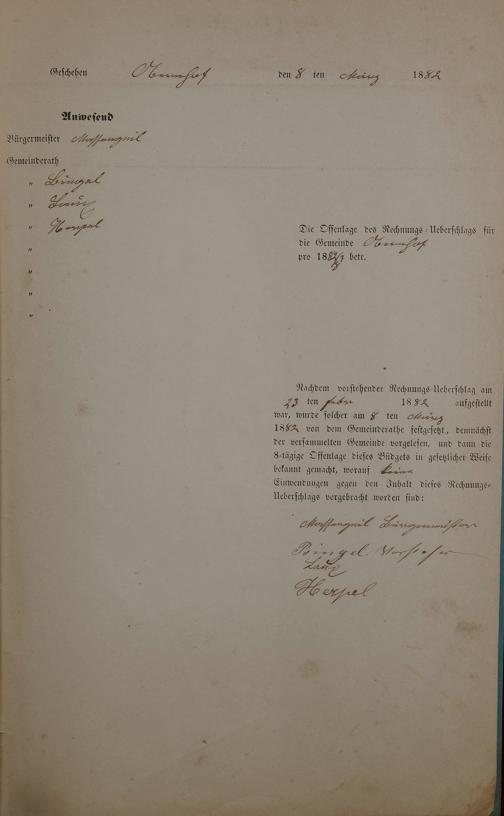 Geschehen Obernhof den 8 ten März 1882
Anwesend
Bürgermeister Massengeil
Gemeinderath
" Bingel
" Laux
" Herpel
"
"
"
"
Die Offenlage des Rechnungs-Ueberschlags für
die Gemeinde Obernhof
pro 1882/3 betr.
Nachdem vorstehender Rechnungs-Ueberschlag am
23 ten Febr 1882 aufgestellt
war, wurde solcher am 8 ten März
1882 von dem Gemeinderathe festgesetzt, demnächst
der versammelten Gemeinde vorgelesen, und dann die
8-tägige Offenlage dieses Büdgets in gesetzlicher Weise
bekannt gemacht, worauf keine
Einwendungen gegen den Inhalt dieses Rechnungs-
Ueberschlags vorgebracht worden sind:
Massengeil Bürgermeister
Bingel Vorsteher
Laux
Herpel